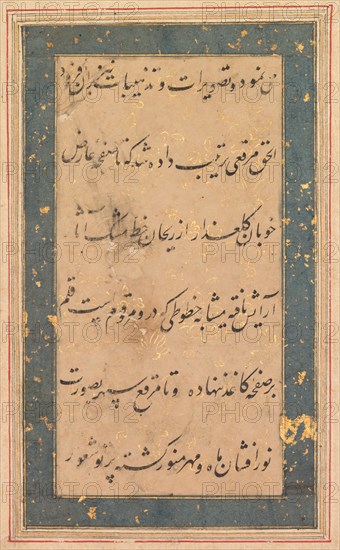 نمود و تصویرات و تذهیبات نیز بران افزود
الحق مرقعی ترتیب داده شد که تا صفحه عارض
خوبان گلعذار از ریحان خط مشک آسا
آرایش یافته مشابه خطوطی که درو مرقوم است قلم
بر صفحه کاغذ نهاده و تا مرقع سپهر بصورت
نور افشان ماه و مهر منور گشته پرتو شعور
PHOTO12